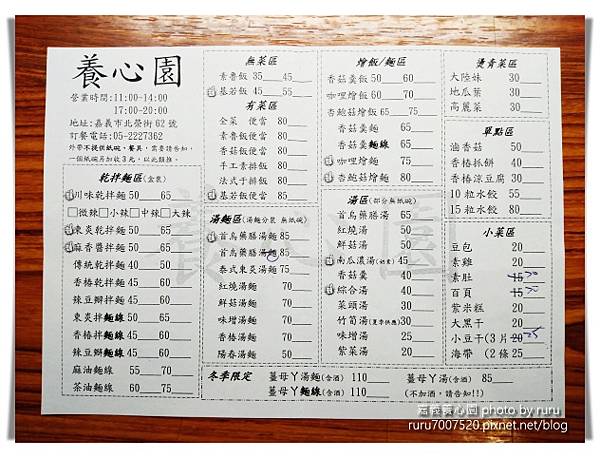 養心園
營業時間:11:00-14:00
17:00-20:00
地址:嘉義市北榮街62號
訂餐電話:05-2227362
外帶不提供紙碗,餐具,需要請告知,
一個紙碗另加收3元,以此類推。
乾拌麵區(盒裝)
川味乾拌麵 50 65
□微辣□小辣□中辣□大辣
東炎乾拌麵 50 65
麻香醬拌麵 50 65
傳統乾拌麵 40 50
香椿乾拌麵 45 60
辣豆瓣拌麵 45 60
東炎拌麵線 50 65
香椿拌麵線 45 60
辣豆瓣麵線 45 60
麻油麵線 55 70
茶油麵線 60 75
無菜區
素魯飯 35 45
基若飯 45 55
有菜區
全菜 便當 80
素魯飯便當 80
香菇飯便當 80
手工素排飯 80
法式于排飯 80
基若飯便當 80
湯麵區(湯麵分裝 無紙碗)
首烏藥膳湯麵 85
首烏藥膳湯麵 85
泰式東炎湯麵 75
紅燒湯麵 70
鮮菇湯麵 70
味增湯麵 70
香椿湯麵 70
陽春湯麵 50
燴飯/麵區
香菇羹飯 50 60
咖哩燴飯 60 70
杏鮑菇燴飯 65 75
香菇羹麵 65
香菇羹麵線 65
咖哩燴麵 75
杏鮑菇燴麵 80
湯區(部分無紙碗)
首烏藥膳湯 65
紅燒湯 50
鮮菇湯 50
南瓜濃湯(奶素) 45
香菇羹 40
綜合湯 40
菜頭湯 30
竹筍湯(夏季供應) 30
味增湯 25
紫菜湯 20
燙青菜區
大陸妹 30
地瓜葉 30
高麗菜 30
單點區
滷香菇 50
香椿抓餅 40
香椿涼豆腐 30
10 粒水餃 55
15 粒水餃 80
小菜區
豆包 20
素雞 20
素肚 15 20
百頁 15 20
紫米糕 20
大黑干 20
小豆干(3 片 20 25
海帶 (2 條 25
冬季限定
薑母丫湯麵(含酒) 110
薑母丫湯(含酒) 85
薑母丫麵線(含酒) 110
(不加酒,請告知!!)
嘉義養心園 photo by ruru
ruru7007520.pixnet.net/blog